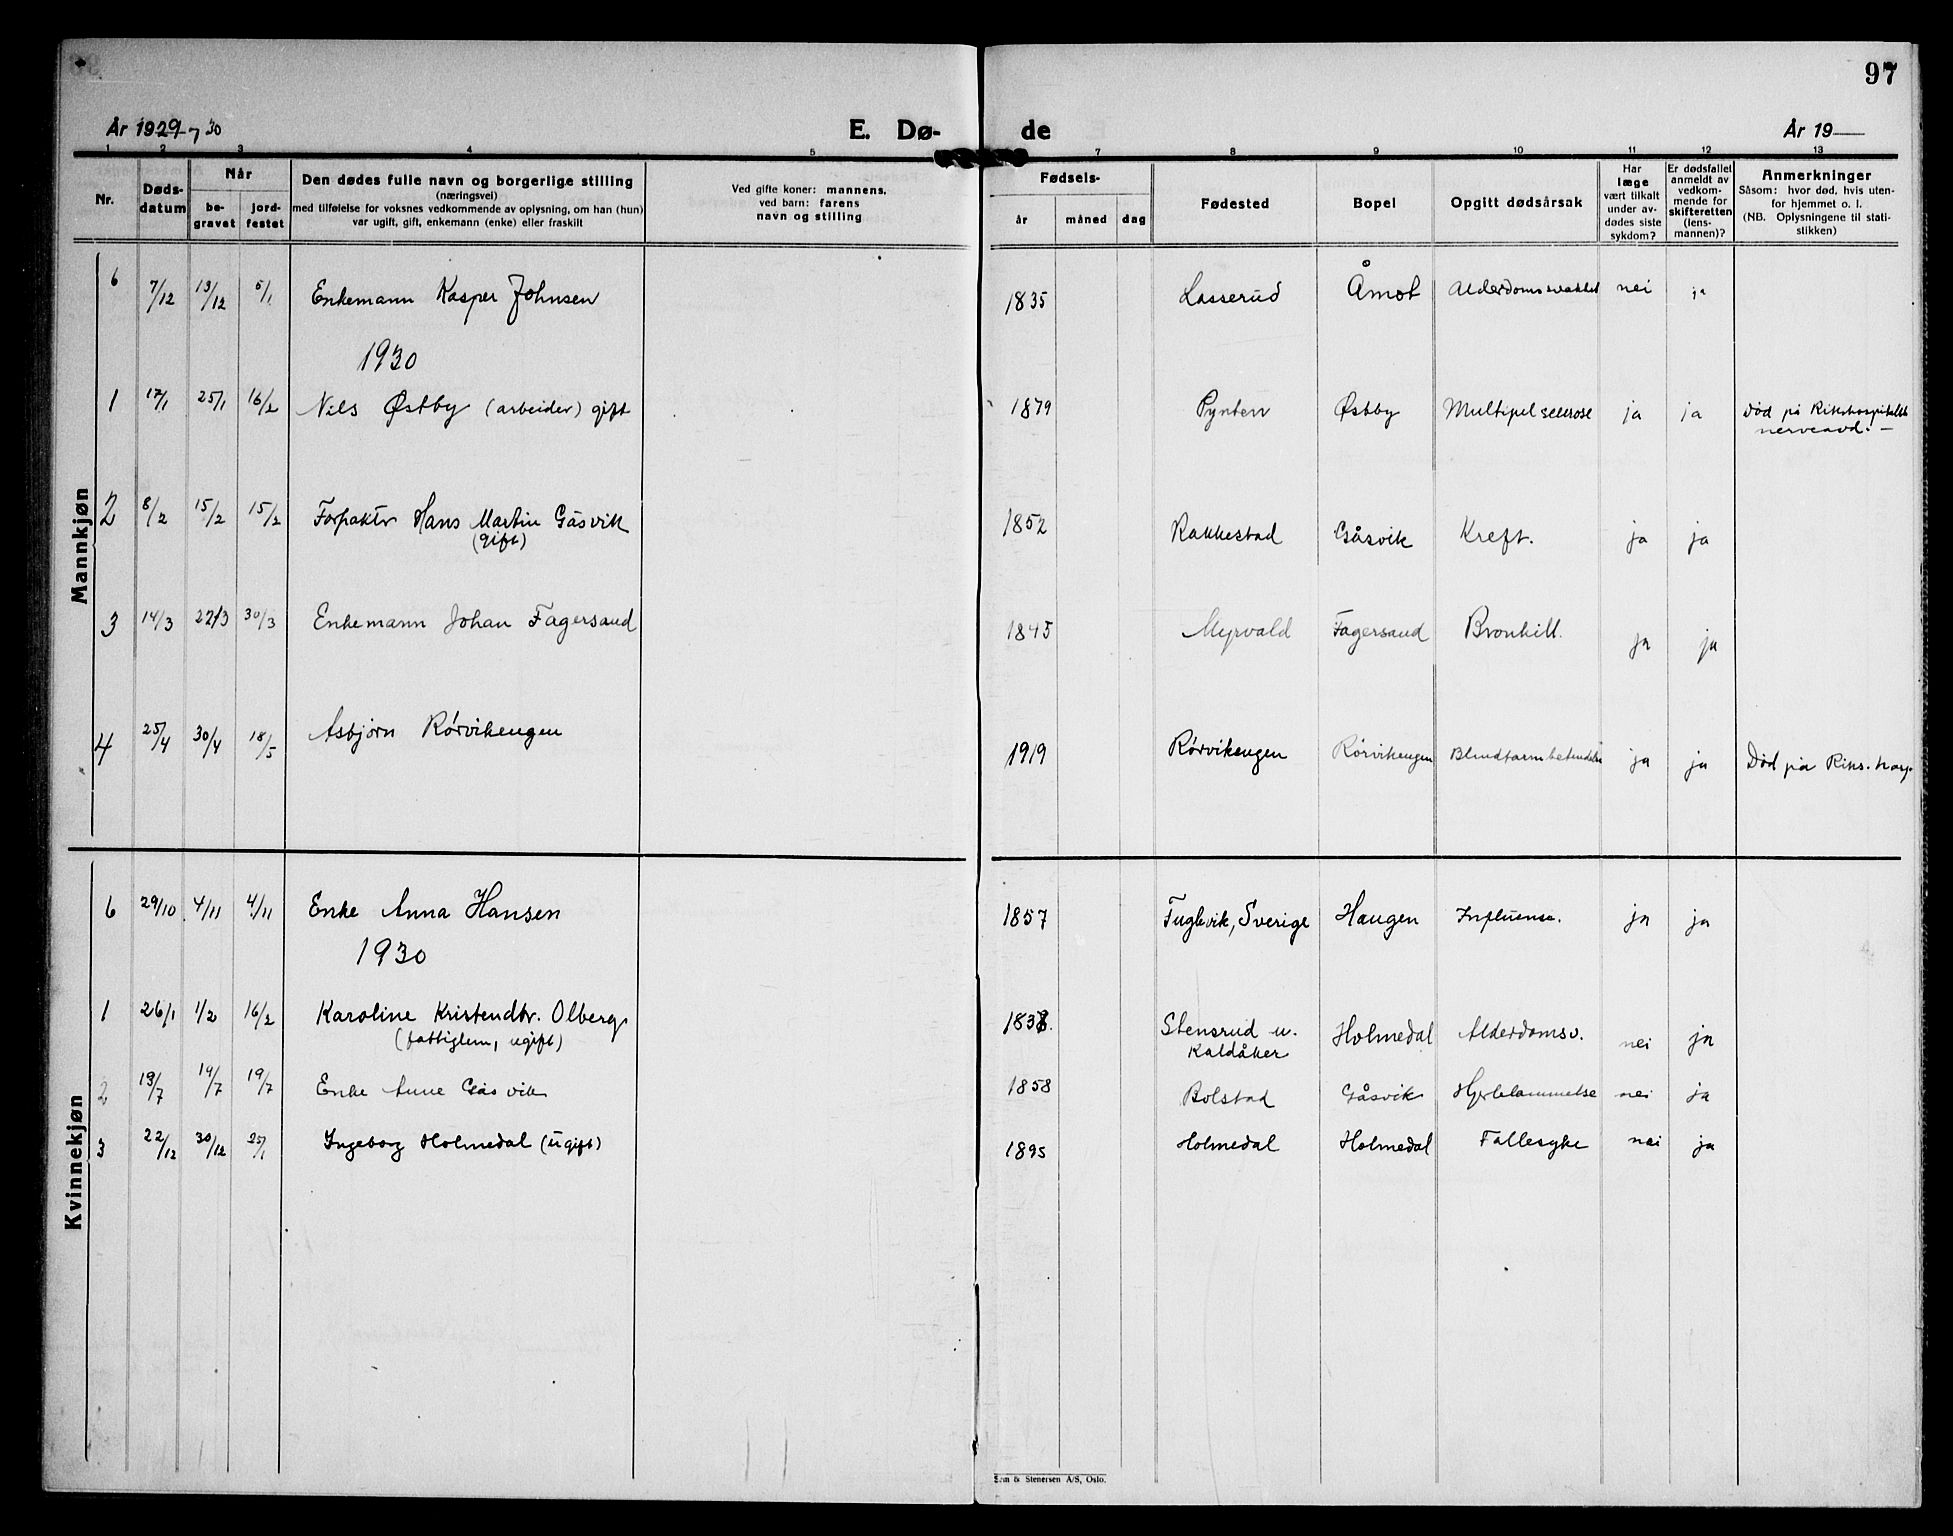 97
År 1929-30
E. Dø-
de
År 19
1 2 3 4 5 7 8 9 10 11 12 13
Nr.
Døds-
datum
Når
be-
gravet
jord-
festet
Den dødes fulle navn og borgerlige stilling
(næringsvei)
med tilføielse for voksnes vedkommende av oplysning, om han (hun)
var ugift, gift, enkemann (enke) eller fraskilt
Ved gifte koner: mannens,
ved barn: farens
navn og stilling
Fødsels-
år måned dag
Fødested
Bopel
Opgitt dødsårsak
Har
læge
vært tilkalt
under av-
dødes siste
sykdom?
Er dødsfallet
anmeldt av
vedkom-
mende for
skifteretten
(lens-
mannen)?
Anmerkninger
Såsom: hvor død, hvis uten-
for hjemmet o. l.
(NB. Oplysningene til stati-
stikken)
Mannkjøn
6 7/12 13/12 5/1 Enkemann Kasper Johnsen 1835 Lasserud Åmot nei ja
1930
1 17/1 25/1 16/2 Nils Østby (arbeider) gift 1879 Pynten Østby Multipel sclerose ja ja Død på Rikshospitalets
nerveavd. –
2 8/2 15/2 15/2 Forpakter Hans Martin Gåsvik 1852 Rakkestad Gåsvik Kreft. ja ja
(gift)
3 14/3 22/3 30/3 Enkemann Johan Fagersand 1845 Myrvald Fagersand Bronkitt. ja ja
4 25/4 30/4 18/5 Asbjørn Rørvikengen 1919 Rørvikengen Rørvikengen Blindtarmbetendelse ja ja Død på Riks. hosp.
Kvinnekjøn
6 29/10 4/11 4/11 Enke Anna Hansen 1857 Fuglevik, Sverige Haugen Influensa. ja ja
1930
1 26/1 1/2 16/2 Karoline Kristendtr. Olberg Stensrud u. Holmedal Alderdomsv. nei ja
(fattiglem, ugift) Kaldåker
2 13/7 19/7 19/7 Enke Anne Gåsvik 1858 Bolstad Gåsvik Hjertelammelse nei ja
3 22/12 30/12 25/1 Ingeborg Holmedal (ugift) 1895 Holmedal Holmedal Fallesyke nei ja
Sem & Stenersen A/S, Oslo.